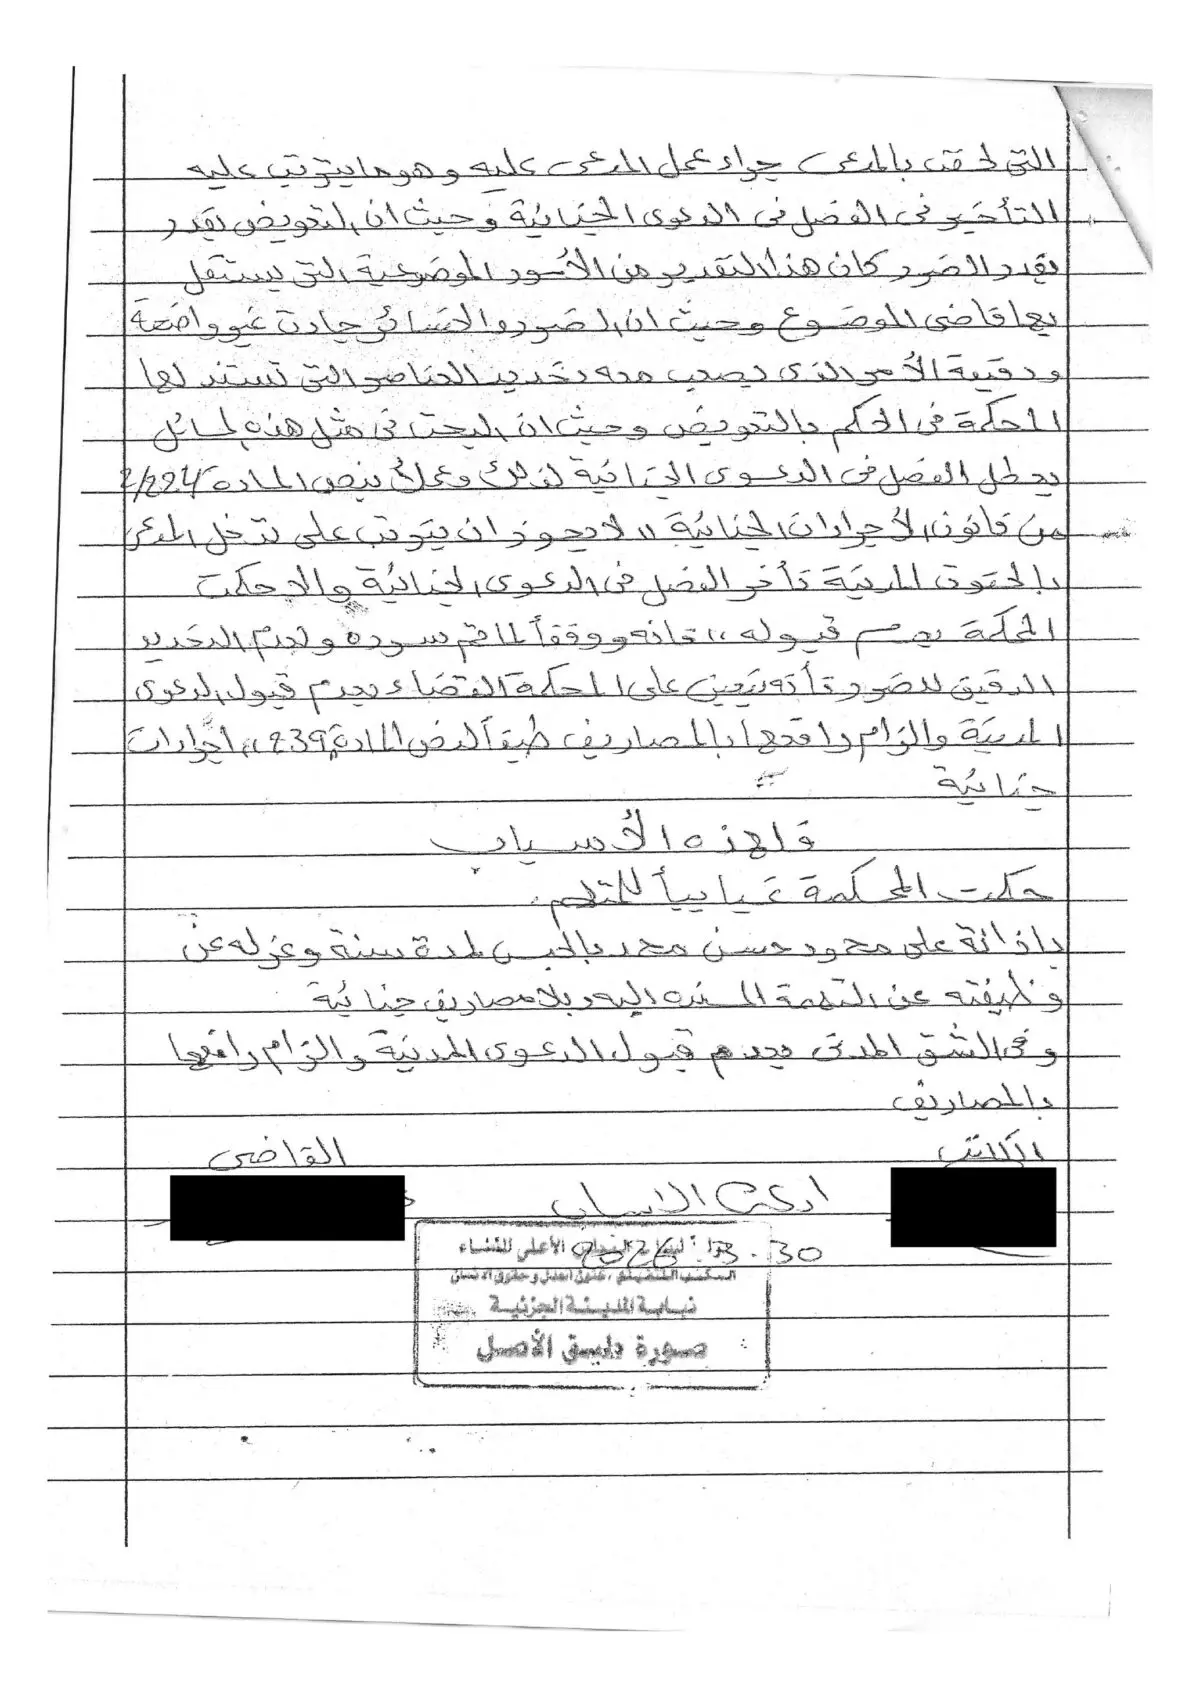 التى لحقت بالمدعى جراء عمل المدعى عليه وهو ما يترتب عليه
التأخير فى الفصل فى الدعوى الجنائية وحيث ان التعويض يقدر
بقدر الضرر كان هذا التقدير من الأمور الموضوعية التى يستقل
بها قاضى الموضوع وحيث ان الضرر والخسائر جاءت غير واضحة
ودقيقة الأمر الذى يصعب معه تحديد العناصر التى تستند لها
المحكمة فى الحكم بالتعويض وحيث ان البحث فى مثل هذه المسائل
يعطل الفصل فى الدعوى الجنائية لذلك وعملاً بنص المادة 2/224
من قانون الأجراءات الجنائية ,, لا يجوز ان يترتب على تدخل المدعى
بالحقوق المدنية تأخر الفصل فى الدعوى الجنائية والا حكمت
المحكمة بعدم قبوله ,, فانه ووفقاً لما تم سرده ولعدم التحديد
الدقيق للضرر فأنه يتعين على المحكمة القضاء بعدم قبول الدعوى
المدنية والزام رافعها بالمصاريف طبقاً لنص المادة ,,239,, اجراءات
جنائية
فلهذه الأسباب
حكمت المحكمة غيابياً للمتهم.
بادانة على محمود حسن محمد بالحبس لمدة سنة وعزله عن
وظيفته عن التهمة المسنده اليه وبلا مصاريف جنائية
وفى الشق المدنى بعدم قبول الدعوى المدنية والزام رافعها
بالمصاريف
الكاتب القاضى
اودعت الاسباب
30 . 3 2026
الأعلى للقضاء
نيابة المدينة الجزئية
صورة طبق الأصل